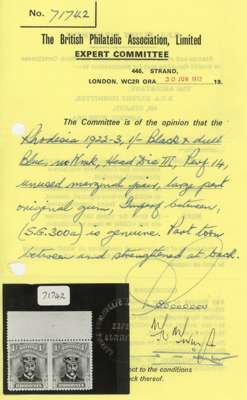 No. 71742
The British Philatelic Association, Limited
EXPERT COMMITTEE
446, STRAND,
LONDON, WC2R ORA 30 JUN 1972 19
The Committee is of the opinion that the
Rhodesia 1922-3, 1/- Black & dull
Blue, no Wmk, Head Die III, Perf 14,
unused marginal pair, large part
original gum, Imperf between,
(S.G. 300a) is genuine. Part torn
between and strengthened at back.
71742
RHODESIA
RHODESIA
ct to the conditions
ck thereof.